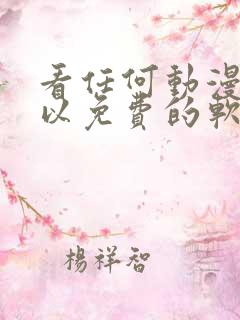 看任何動漫
以免費的軟
楊祥智